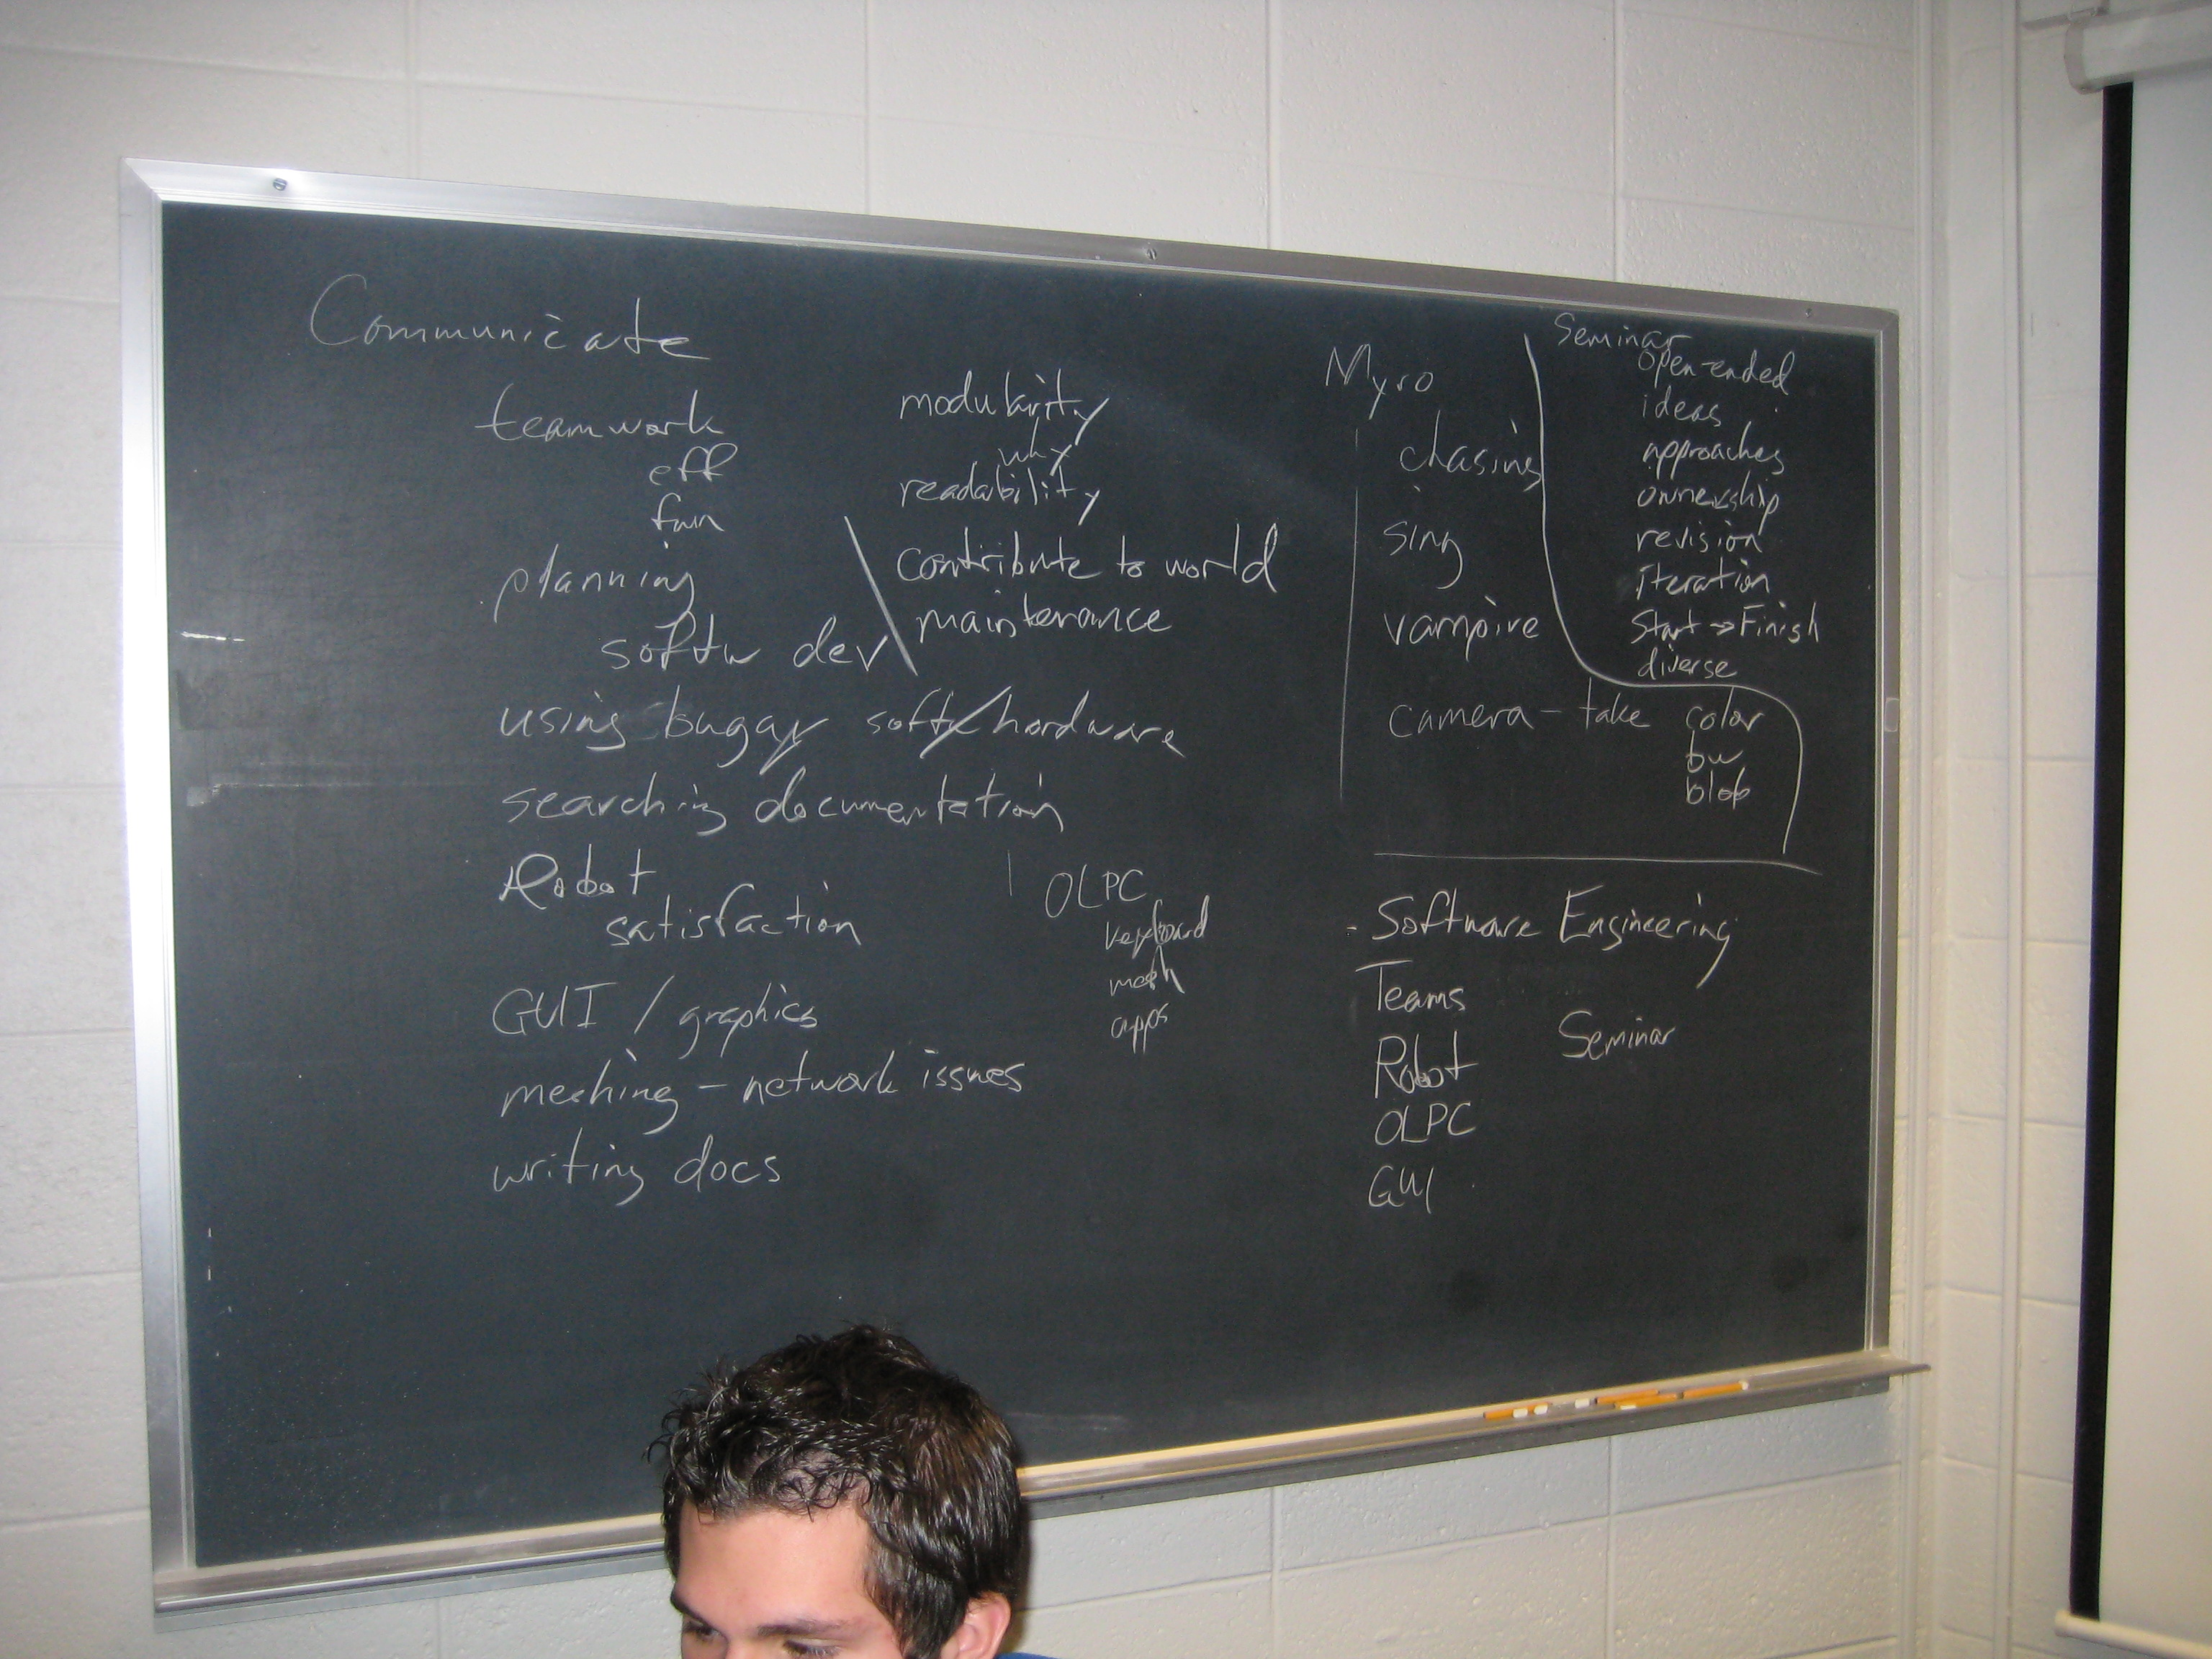 Communicate
teamwork
eff
fun
planning
softw dev
modularity
why
readability
contribute to world
maintenance
using buggy soft/hardware
searching documentation
Robot
satisfaction
GUI / graphics
meshing - network issues
writing docs
OLPC
keyboard
mesh
apps
Myro
chasing
sing
vampire
camera - take color
bw
blob
Seminar
open-ended
ideas
approaches
ownership
revision
iteration
Start → Finish
diverse
- Software Engineering
Teams
Robot
OLPC
GUI
Seminar